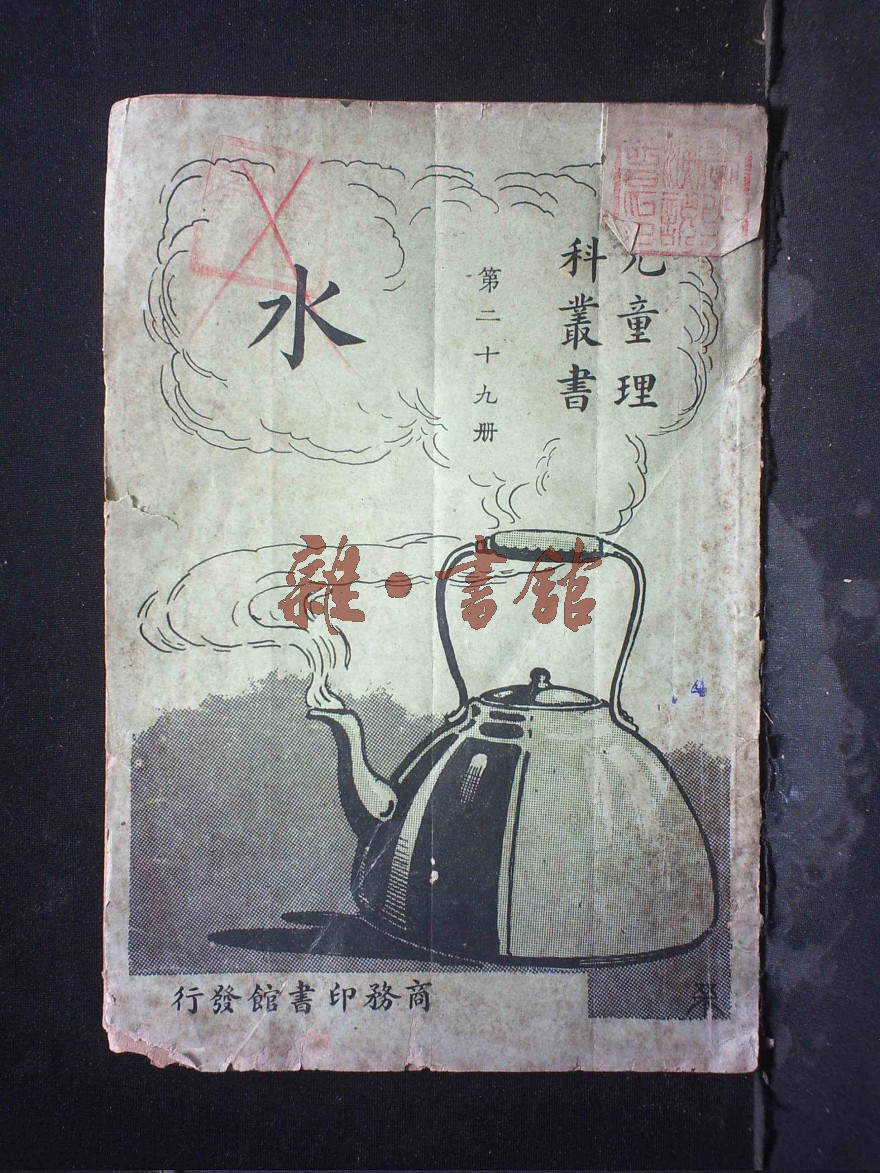 兒童理
科叢書
第二十九册
水
商務印書館發行
雜·書館